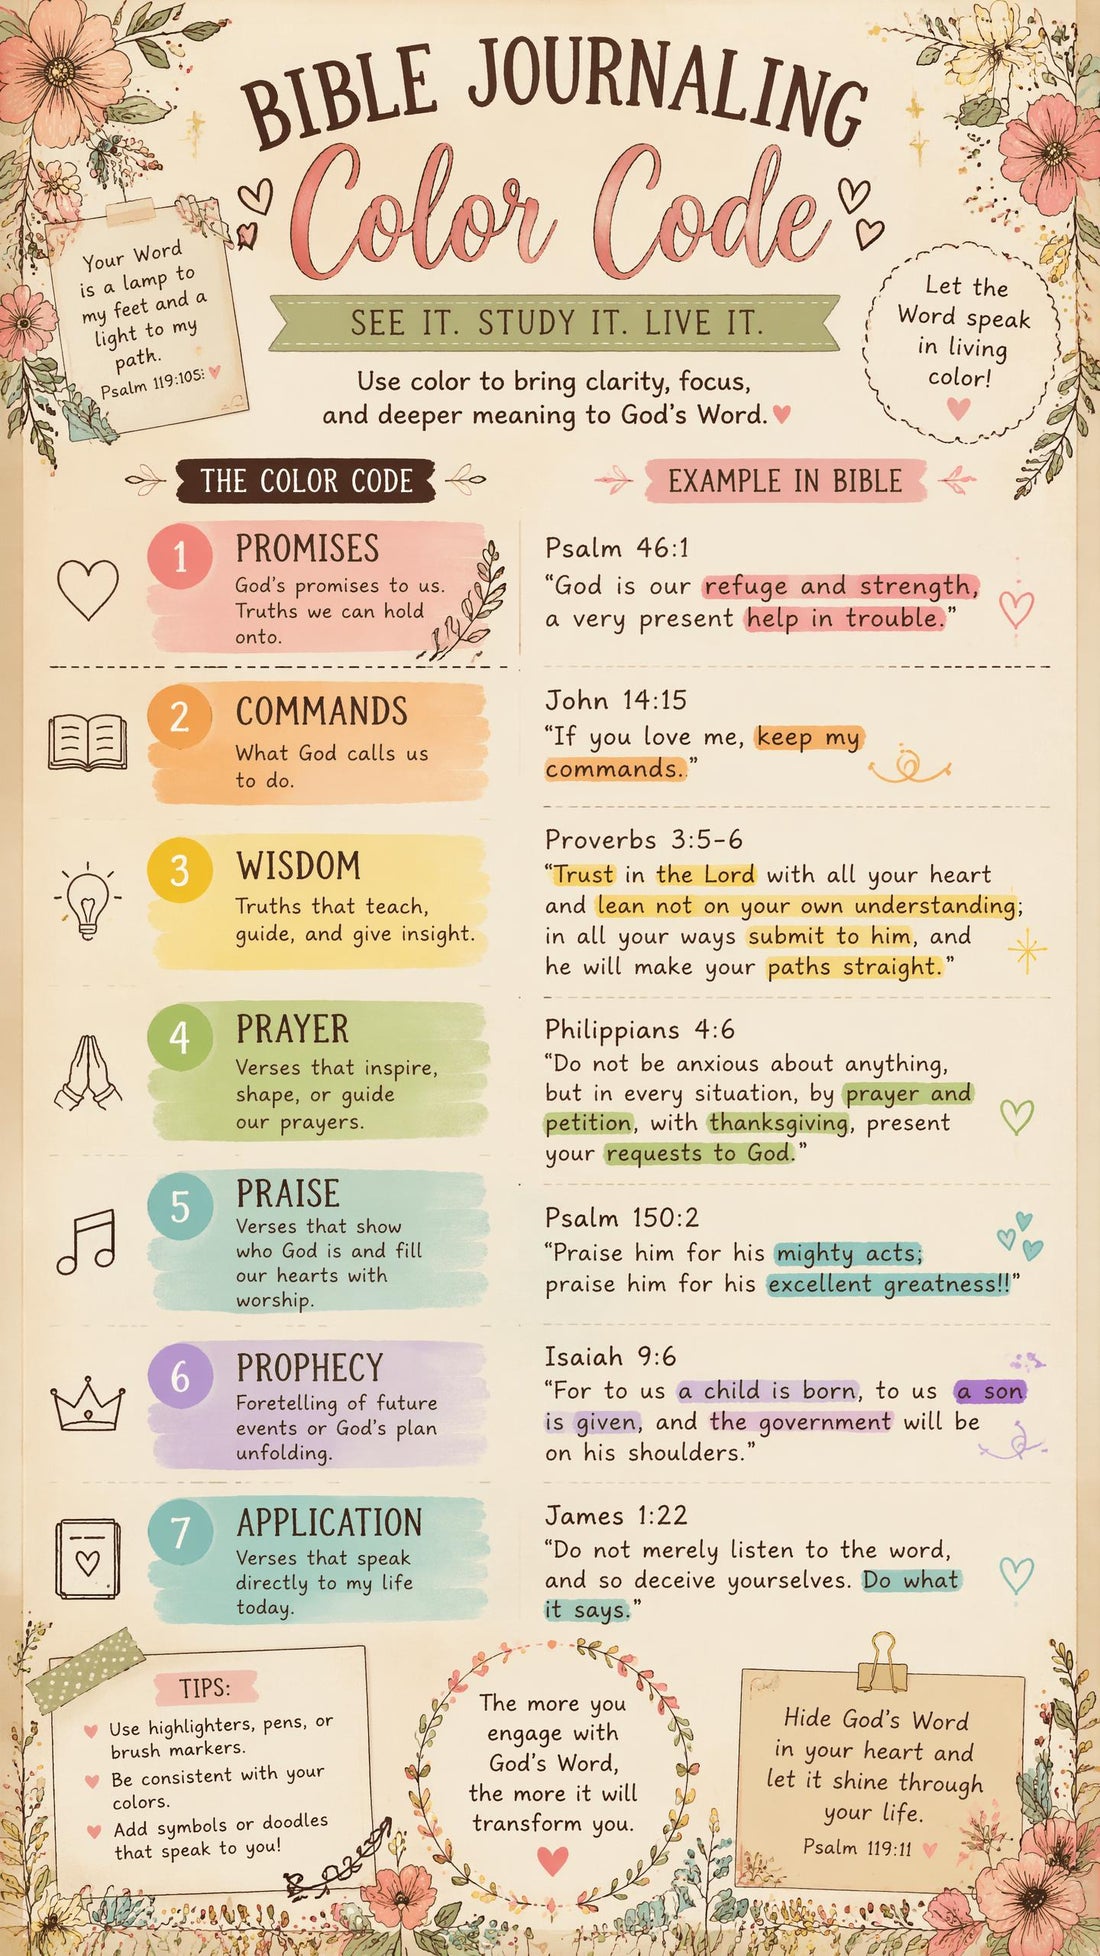 BIBLE JOURNALING
Color Code
Your Word
is a lamp to
my feet and a
light to my
path.
Psalm 119:105:
SEE IT. STUDY IT. LIVE IT.
Let the
Word speak
in living
color!
Use color to bring clarity, focus,
and deeper meaning to God's Word.
THE COLOR CODE
EXAMPLE IN BIBLE
1
PROMISES
God's promises to us.
Truths we can hold
onto.
Psalm 46:1
“God is our refuge and strength,
a very present help in trouble.”
2
COMMANDS
What God calls us
to do.
John 14:15
“If you love me, keep my
commands.”
3
WISDOM
Truths that teach,
guide, and give insight.
Proverbs 3:5–6
“Trust in the Lord with all your heart
and lean not on your own understanding;
in all your ways submit to him, and
he will make your paths straight.”
4
PRAYER
Verses that inspire,
shape, or guide
our prayers.
Philippians 4:6
“Do not be anxious about anything,
but in every situation, by prayer and
petition, with thanksgiving, present
your requests to God.”
5
PRAISE
Verses that show
who God is and fill
our hearts with
worship.
Psalm 150:2
“Praise him for his mighty acts;
praise him for his excellent greatness!!”
6
PROPHECY
Foretelling of future
events or God's plan
unfolding.
Isaiah 9:6
“For to us a child is born, to us a son
is given, and the government will be
on his shoulders.”
7
APPLICATION
Verses that speak
directly to my life
today.
James 1:22
“Do not merely listen to the word,
and so deceive yourselves. Do what
it says.”
TIPS:
Use highlighters, pens, or
brush markers.
Be consistent with your
colors.
Add symbols or doodles
that speak to you!
The more you
engage with
God's Word,
the more it will
transform you.
Hide God's Word
in your heart and
let it shine through
your life.
Psalm 119:11